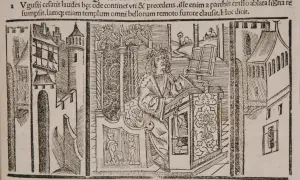 a Vgusti cesaris laudes hęc ode continet vti & precedens. ille enim a parthis crasso ablata signa re
sumpsit. Iamq; etiam templum omni bellorum remoto furore clausit. Hoc dicit.